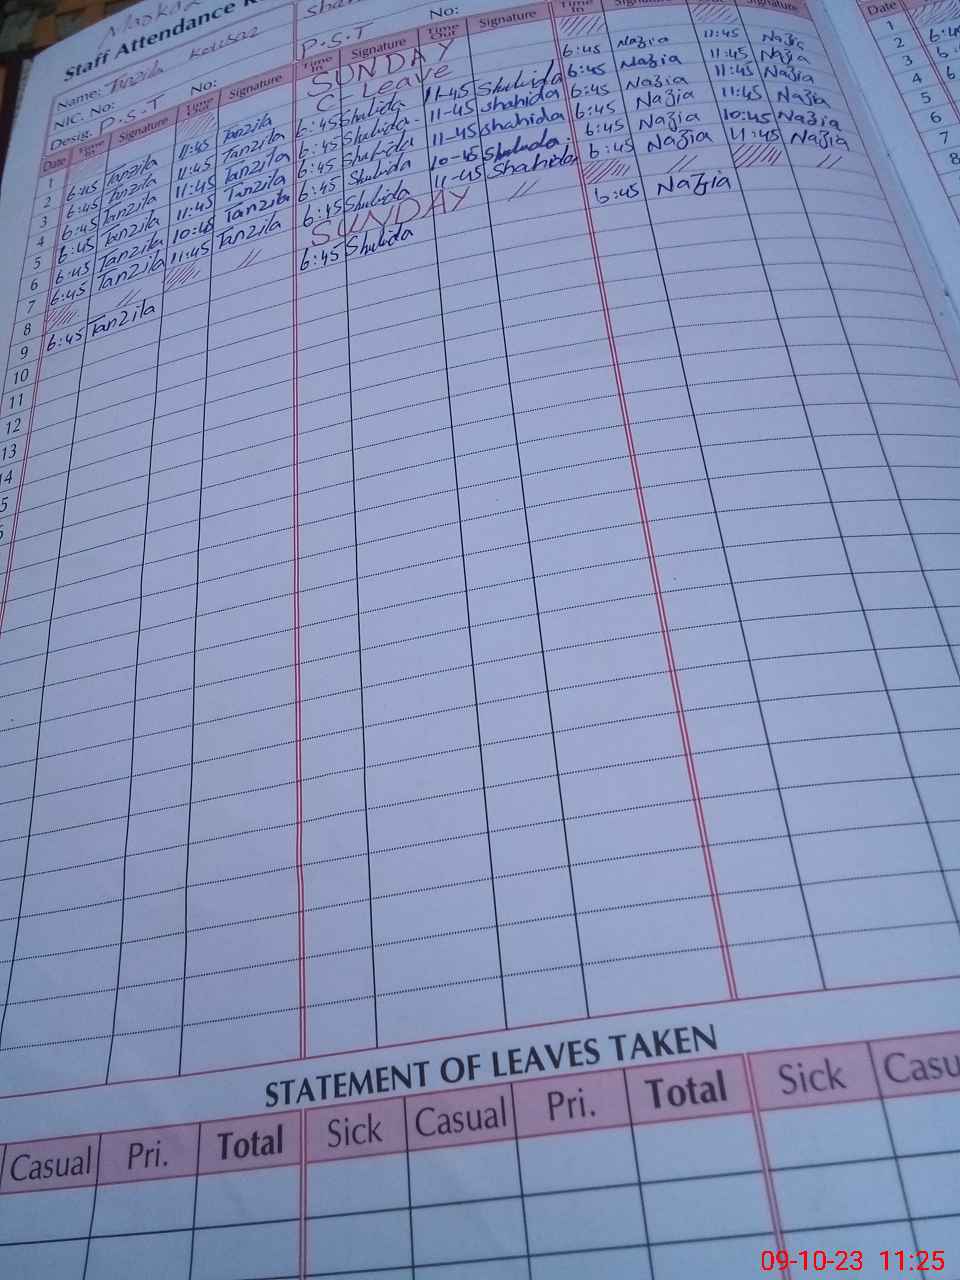 Staff Attendance
Name: Tanzila Kousar
NIC. No: No: No:
Desig. P.S.T P.S.T
Date Time In Signature Time Out Signature Time In Signature Time Out Signature Time In Signature Date
SUNDAY
1 C-Leave 6:45 Nazia 11:45 Nazia 1
2 6:45 Tanzila 11:45 Tanzila 6:45 Shahida 11-45 Shahida 6:45 Nazia 11:45 Nazia 2 6:45
3 6:45 Tanzila 11:45 Tanzila 6:45 Shahida 11-45 Shahida 6:45 Nazia 11:45 Nazia 3
4 6:45 Tanzila 11:45 Tanzila 6:45 Shahida 11-45 Shahida 6:45 Nazia 11:45 Nazia 4
5 6:45 Tanzila 11:45 Tanzila 6:45 Shahida 10-45 Shahida 6:45 Nazia 10:45 Nazia 5
6 6:45 Tanzila 10:45 Tanzila 6:45 Shahida 11-45 Shahida 6:45 Nazia 11:45 Nazia 6
7 6:45 Tanzila 11:45 Tanzila SUNDAY 7
8 6:45 Shahida 6:45 Nazia 8
9 6:45 Tanzila
10
11
12
13
14
STATEMENT OF LEAVES TAKEN
Casual Pri. Total Sick Casual Pri. Total Sick Casu
09-10-23 11:25